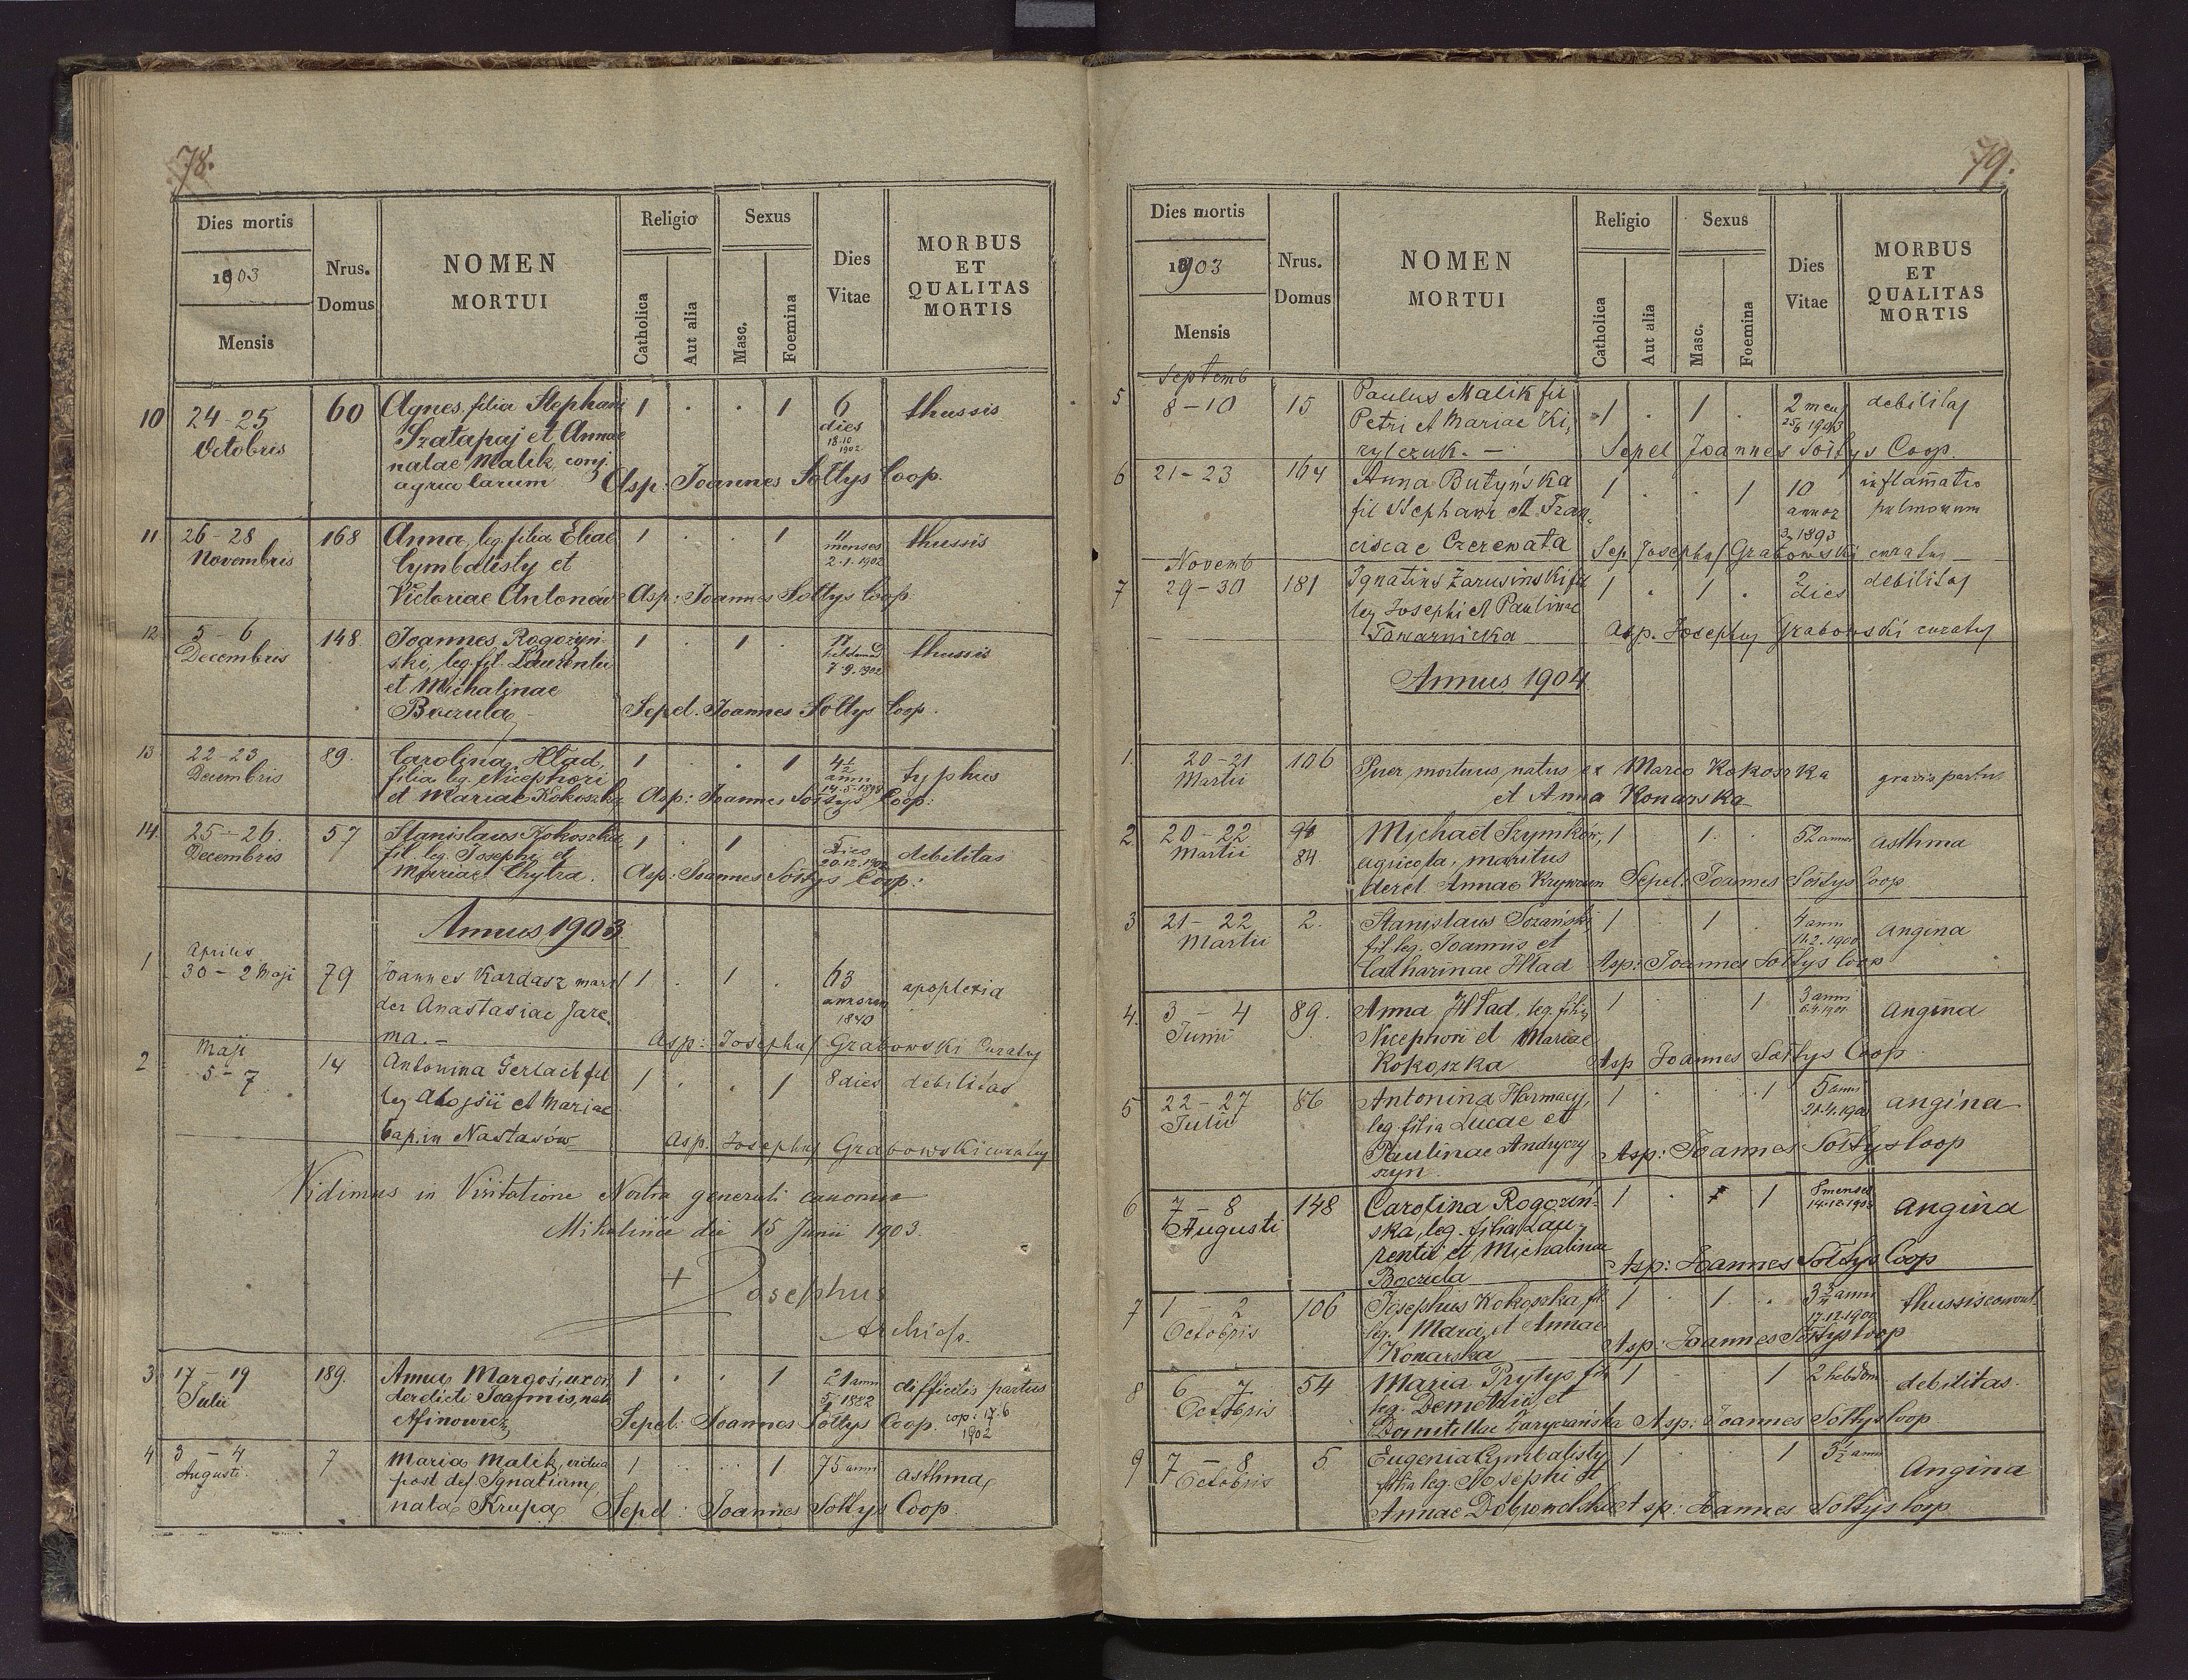 78.
Dies mortis
1903
Mensis
Nrus.
Domus
NOMEN
MORTUI
Religio
Catholica
Aut alia
Sexus
Masc.
Foemina
Dies
Vitae
MORBUS
ET
QUALITAS
MORTIS
10 24-25 60 Agnes, filia Stephani 1 . . 1 6 thussis
Octobris Szatapaj et Annae dies
natae Malik, conj. 18.10
1902
agricolarum Asp: Joannes Sołtys Coop.
11 26-28 168 Anna, leg. filia Eliae 1 . . 1 11 thussis
Novembris Cymbalisty et menses
2.1.1902
Victoriae Antonów Asp: Joannes Sołtys Coop.
12 5-6 148 Joannes Rogozyń- 1 . 1 . thussis
Decembris ski, leg. fil. Laurentii 7.9.1902
et Michalinae
Boczula Sepel. Joannes Sołtys Coop.
13 22-23 89. Carolina Hład, 1 . . 1 4½ typhus
Decembris filia leg. Nicephori anni
et Mariae Kokoszka Asp: Joannes Sołtys Coop:
14. 25-26. 57 Stanislaus Kokoszka 1 . 1 5 debilitas
Decembris fil. leg. Josephi et dies
20.12.1902
Mariae Chytra. Asp: Joannes Sołtys Coop:
Annus 1903
1 Aprilis
30-2 Maji 79 Joannes Kardasz mari 1 . 1 . 63 apoplexia
der Anastasiae Jare- annorum
1840
ma.- Asp: Josephus Grabowski Curatus
2 Maji
5-7 14 Antonina Gerlach fil 1 . . 1 8 dies debilitas
leg Alojsii et Mariae
bap. in Nastasów Asp. Josephus Grabowski curatus
Vidimus in Visitatione Nostra generali canonica
Mikulińce die 15 Junii 1903.
+ Josephus
Archiep.
3 17-19 189. Anna Margoś, uxor 1 . . 1 21 anni difficilis partus
Julii derelicti Joannis, nata 1882
Afinowicz Sepel: Joannes Sołtys Coop. cop: 17.6
1902
4 3-4 7 Maria Malik, vidua 1 . . 1 75 anni asthma
Augusti. post def Ignatium,
nata Krupa Sepel: Joannes Sołtys Coop.
79.
Dies mortis
1903
Mensis
Nrus.
Domus
NOMEN
MORTUI
Religio
Catholica
Aut alia
Sexus
Masc.
Foemina
Dies
Vitae
MORBUS
ET
QUALITAS
MORTIS
Septemb
5 8-10 15 Paulus Malik fil 1 . 1 . 2 mens debilitas
Petri et Mariae Ki-
rylczuk.- Sepel Joannes Sołtys Coop.
6 21-23 164 Anna Butyńska 1 . . 1 10 inflamatio
fil Stephani et Fran- annor pulmonum
1893
ciscae Czerewata Sep. Josephus Grabowski curatus
Novemb
7 29-30 181 Ignatius Zarusinski fil 1 . 1 . 2 debilitas
leg Josephi et Paulinae dies
Tawarnicka Asp. Josephus Grabowski curatus
Annus 1904.
1. 20-21 106 Puer mortuus natus ex Marco Kokoszka gravis partus
Martii et Anna Konarska
2. 20-22 Michael Szymków, 1 . 1. 52 annor asthma
Martii 84. agricola, maritus
derel Annae Krywcun Sepel: Joannes Sołtys Coop
3 21-22 2. Stanislaus Sozański, 1 . 1 . 4 anni angina
Martii fil. leg. Joannis et 11.2.1900
Catharinae Hład Asp: Joannes Sołtys Coop
4. 3-4 89. Anna Hład, leg. filia 1 . . 1 3 anni angina
Junii Nicephori et Mariae
Kokoszka Asp Joannes Sołtys Coop.
5 22-27 86 Antonina Harmacy, 1 . . 1 5 anni angina
Julii leg filia Lucae et
Paulinae Andryczy Asp: Joannes Sołtys Coop
szyn.
6 7-8 148 Carolina Rogoziń- 1 . 1 8 menses angina
Augusti ska, leg. filia Lau- 14.12.1903
rentii et Michalinae
Boczula Asp: Joannes Sołtys Coop
7 1-2 106 Josephus Kokoszka fil. 1 . 1. . 3¾ anni thussis convul.
Octobris leg. Marci et Annae 17.12.1900
Konarska Asp: Joannes Sołtys Coop
8 6-7 54 Maria Prytys fil. 1 . . 1 2 hebdom debilitas.
Octobris leg. Demetrii et
Domitillae Zaryczańska Asp: Joannes Sołtys Coop
9 7-8 5 Eugenia Cymbalisty 1 . . 1 3½ anni Angina
Octobris filia leg. Josephi et
Annae Dobrowolska Asp: Joannes Sołtys Coop.